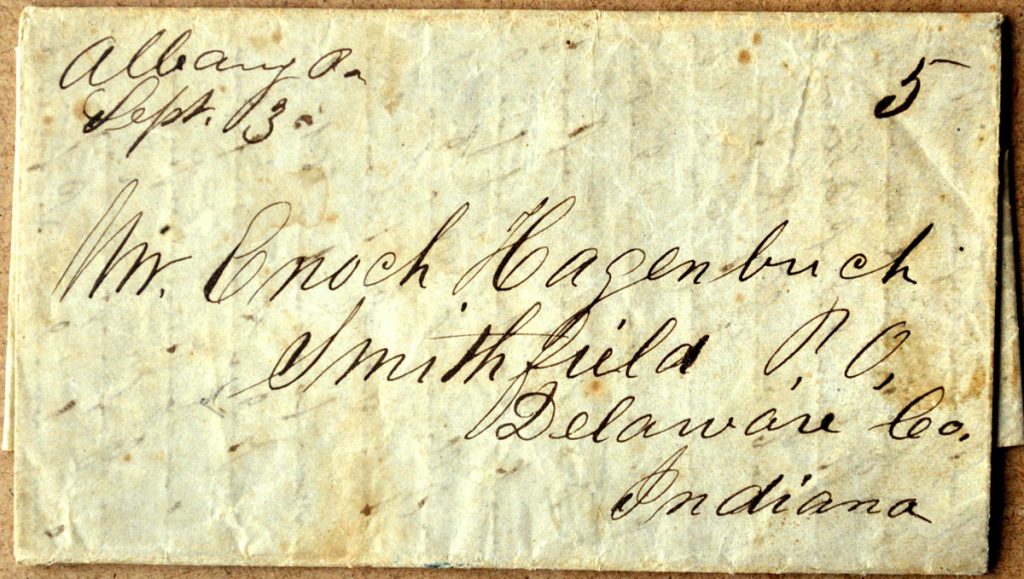 Albany Pa
Sept. 3.
5
Mr. Enoch Hagenbuch
Smithfield P. O.
Delaware Co.
Indiana